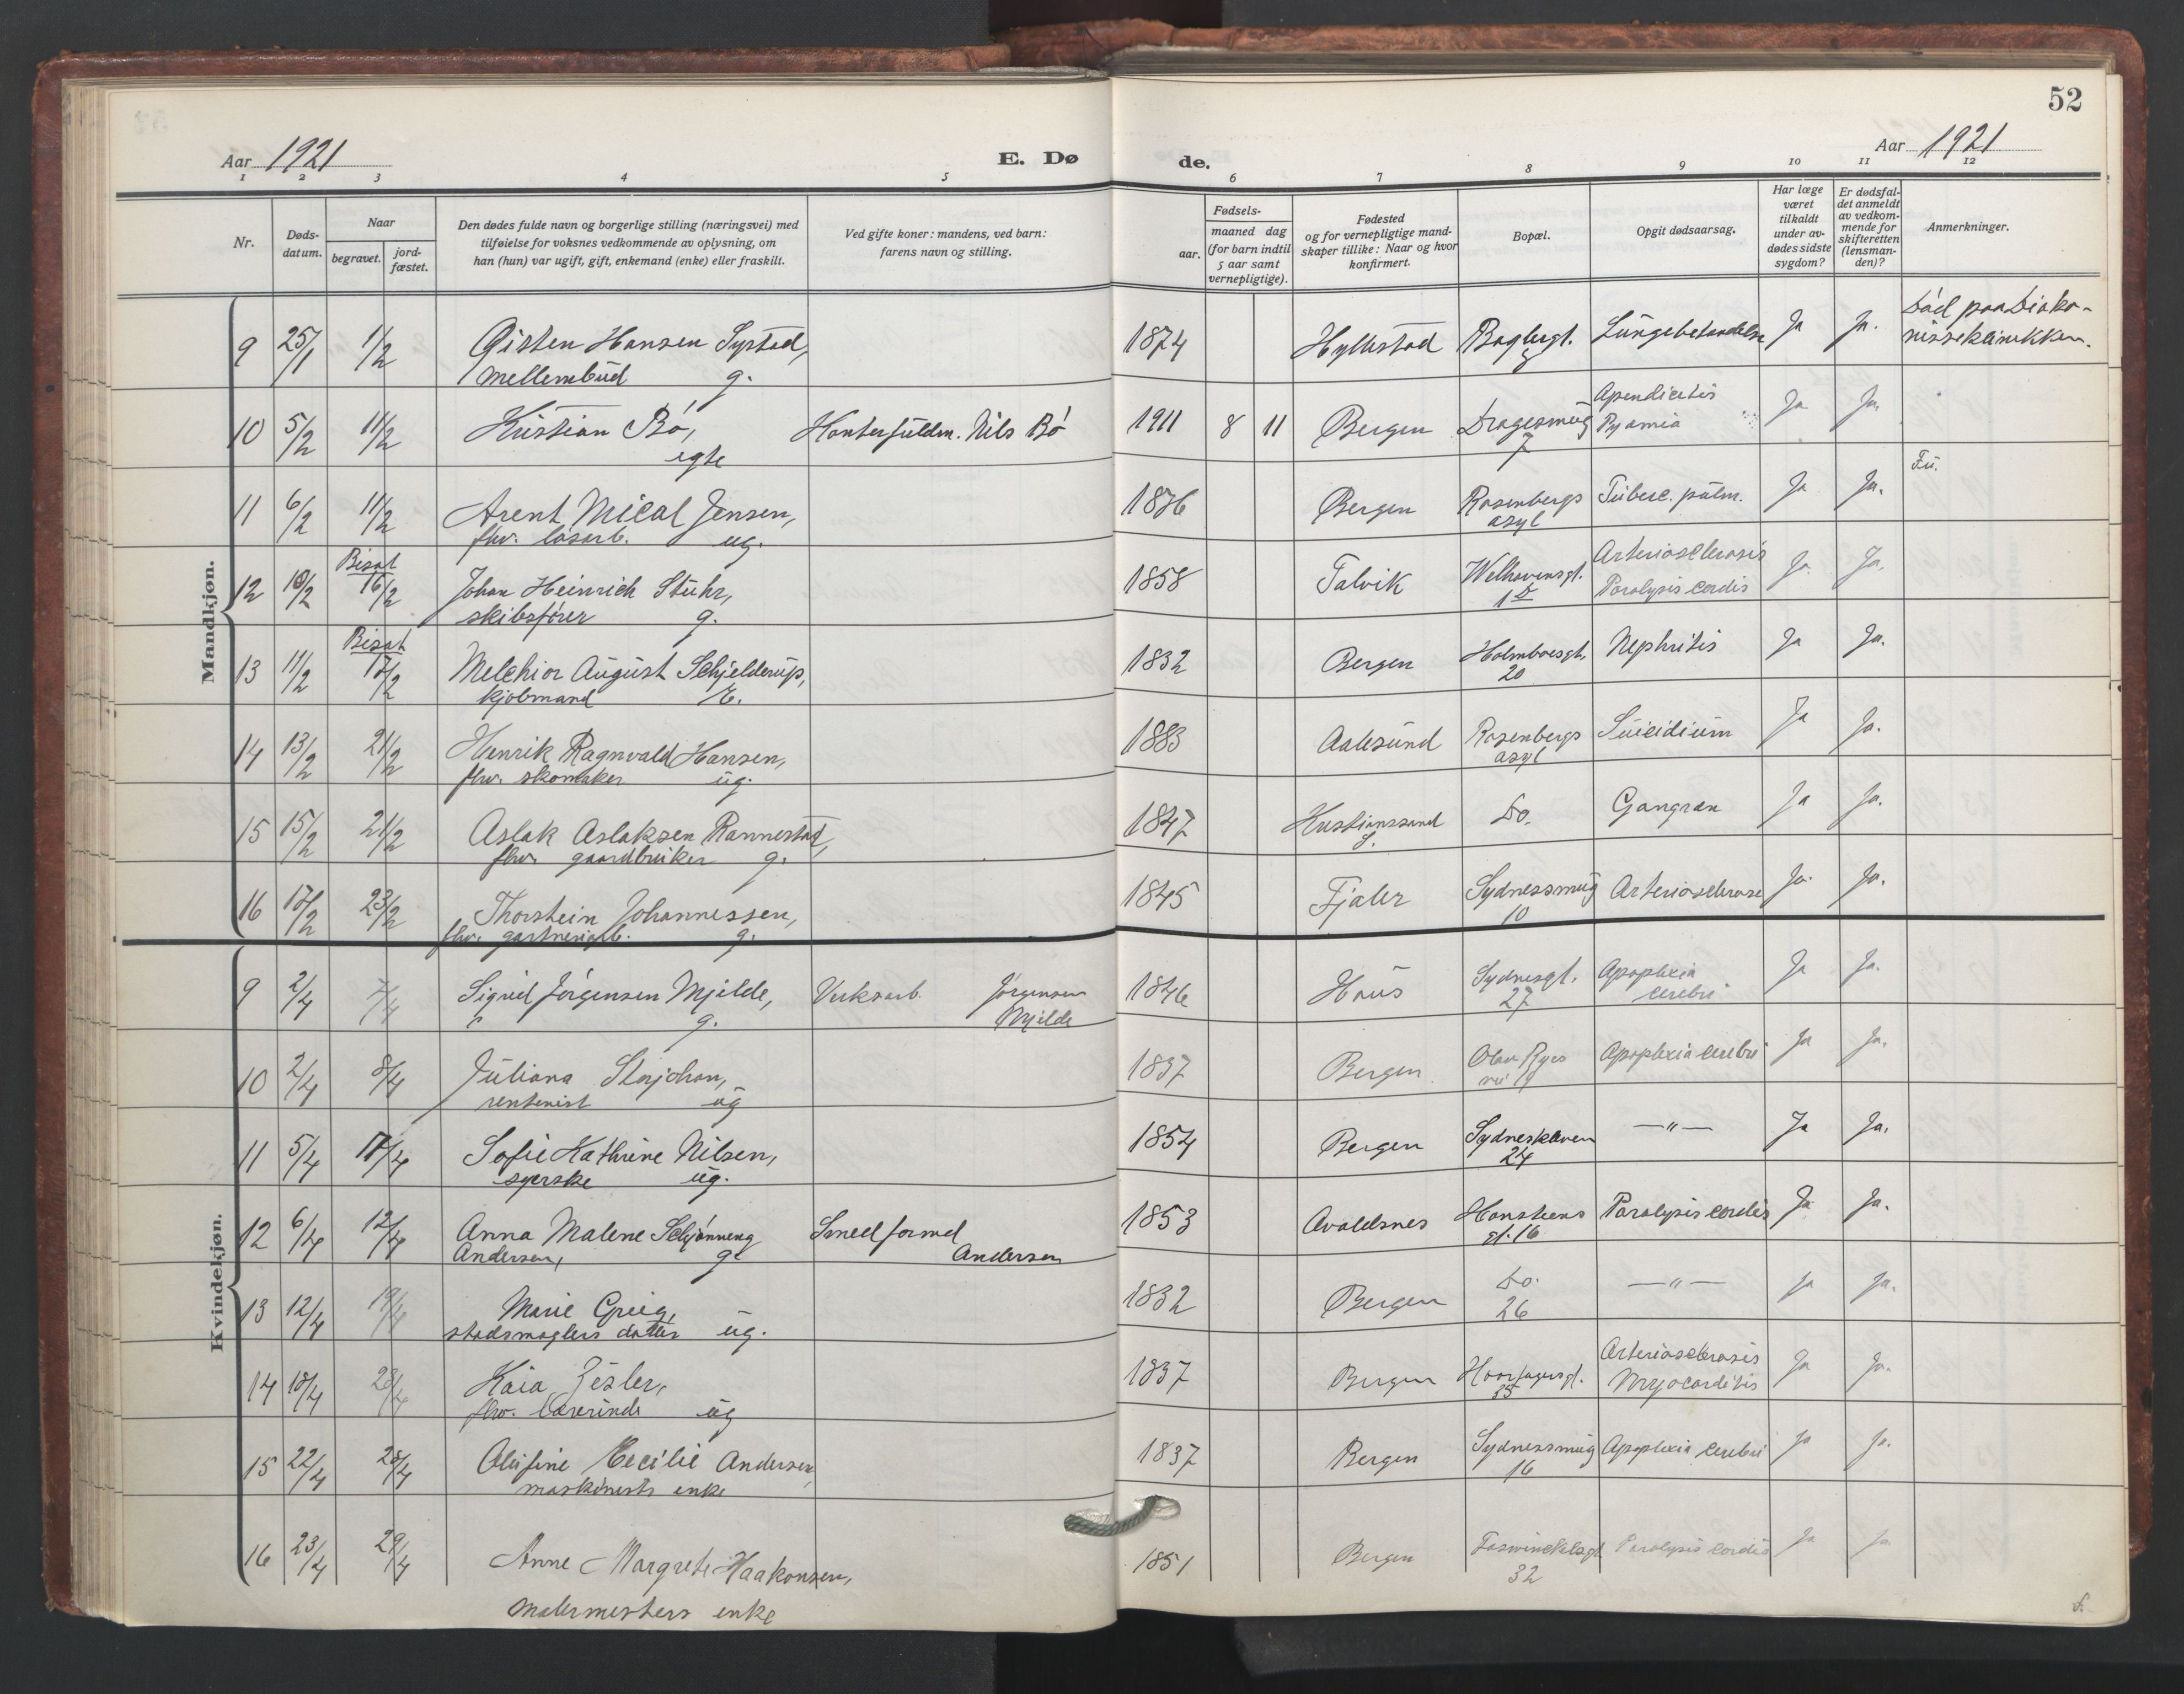 52
Aar 1921
E. Dø
de.
Aar 1921
1 2 3 4 5 6 7 8 9 10 11 12
Nr.
Døds-
datum.
Naar
begravet.
jord-
fæstet.
Den dødes fulde navn og borgerlige stilling (næringsvei) med
tilføielse for voksnes vedkommende av oplysning, om
han (hun) var ugift, gift, enkemand (enke) eller fraskilt.
Ved gifte koner: mandens, ved barn:
farens navn og stilling.
Fødsels-
aar.
maaned dag
(for barn indtil
5 aar samt
vernepligtige).
Fødested
og for vernepligtige mand-
skaper tillike: Naar og hvor
konfirmert.
Bopæl.
Opgit dødsaarsag.
Har læge
været
tilkaldt
under av-
dødes sidste
sygdom?
Er dødsfal-
det anmeldt
av vedkom-
mende for
skifteretten
(lensman-
den)?
Anmerkninger.
Mandkjøn.
9 25/1 1/2 Gisten Hansen Systad, 1874 Hyllestad Baglergt. Lungebetændelse Ja Ja. Død paa Diako-
mellembud g. nisseklinikken.
10 5/2 11/2 Kristian Bö, Nils Bö 1911 8 11 Bergen Dragesmug Apendicitis Ja Ja.
egte 7 Pyämia
11 6/2 11/2 Arent Mical Jensen, 1876 Bergen Rosenbergs Tuberc. pulm. Ja Ja. Fu.
fhv. løsarb. ug. asyl
12 10/2 Bisat 16/2 Johan Heinrich Stuhr, 1858 Talvik Welhavensgt. Arteriosclerosis Ja Ja.
skibsfører g. Paralysis cordis
13 11/2 Bisat 17/2 Melchior August Schjelderup, 1832 Bergen Holmboesgt. Nephritis Ja Ja.
kjøbmand E. 20
14 13/2 21/2 Henrik Ragnvald Hansen, 1883 Aalesund Rosenbergs Suicidium Ja Ja.
fhv. skomaker ug. asyl
15 15/2 21/2 Aslak Aslaksen Rannestad, 1847 Kristianssand Do. Gangræn Ja Ja.
fhv. gaardbruker g. S.
16 17/2 23/2 Thorstein Johannessen, 1845 Fjaler Sydnessmug Arteriosclerose Ja. Ja.
fhv. gartneriarb. g. 10
Kvindekjøn.
9 2/4 7/4 Sigrid Jörgensen Mjelde, Verksarb. Jørgensen 1846 Haus Sydnesgt. Apoplexia Ja Ja.
g. Mjelde 27 cerebri
10 2/4 8/4 Juliana Storjohan, 1837 Bergen Olav Ryes Apoplexia cerebri Ja Ja.
rentenist ug vei
11 5/4 11/4 Sofie Kathrine Nilsen, 1854 Bergen Sydneskleven —"— Ja Ja.
syerske ug. 24
12 6/4 12/4 Anna Malene Schjönneng Smedformd 1853 Avaldsnes Hansteens Paralysis cordis Ja Ja.
Andersen, g. Andersen gt. 16
13 12/4 19/4 Marie Grieg, 1832 Bergen Do. —"— Ja Ja.
stadsmæglers datter ug. 26
14 18/4 23/4 Kaia Resler, 1837 Bergen Haarfagersgt. Arteriosclerosis Ja Ja.
fhv. Lærerinde ug 35 Myocarditis
15 22/4 28/4 Olufine Cecilie Andersen, 1837 Bergen Sydnessmug Apoplexia cerebri Ja Ja.
maskinists enke 16
16 23/4 29/4 Anne Margrete Haakonsen, 1851 Bergen Foswinckelsgt. Paralysis cordis Ja Ja
Malermesters enke 32